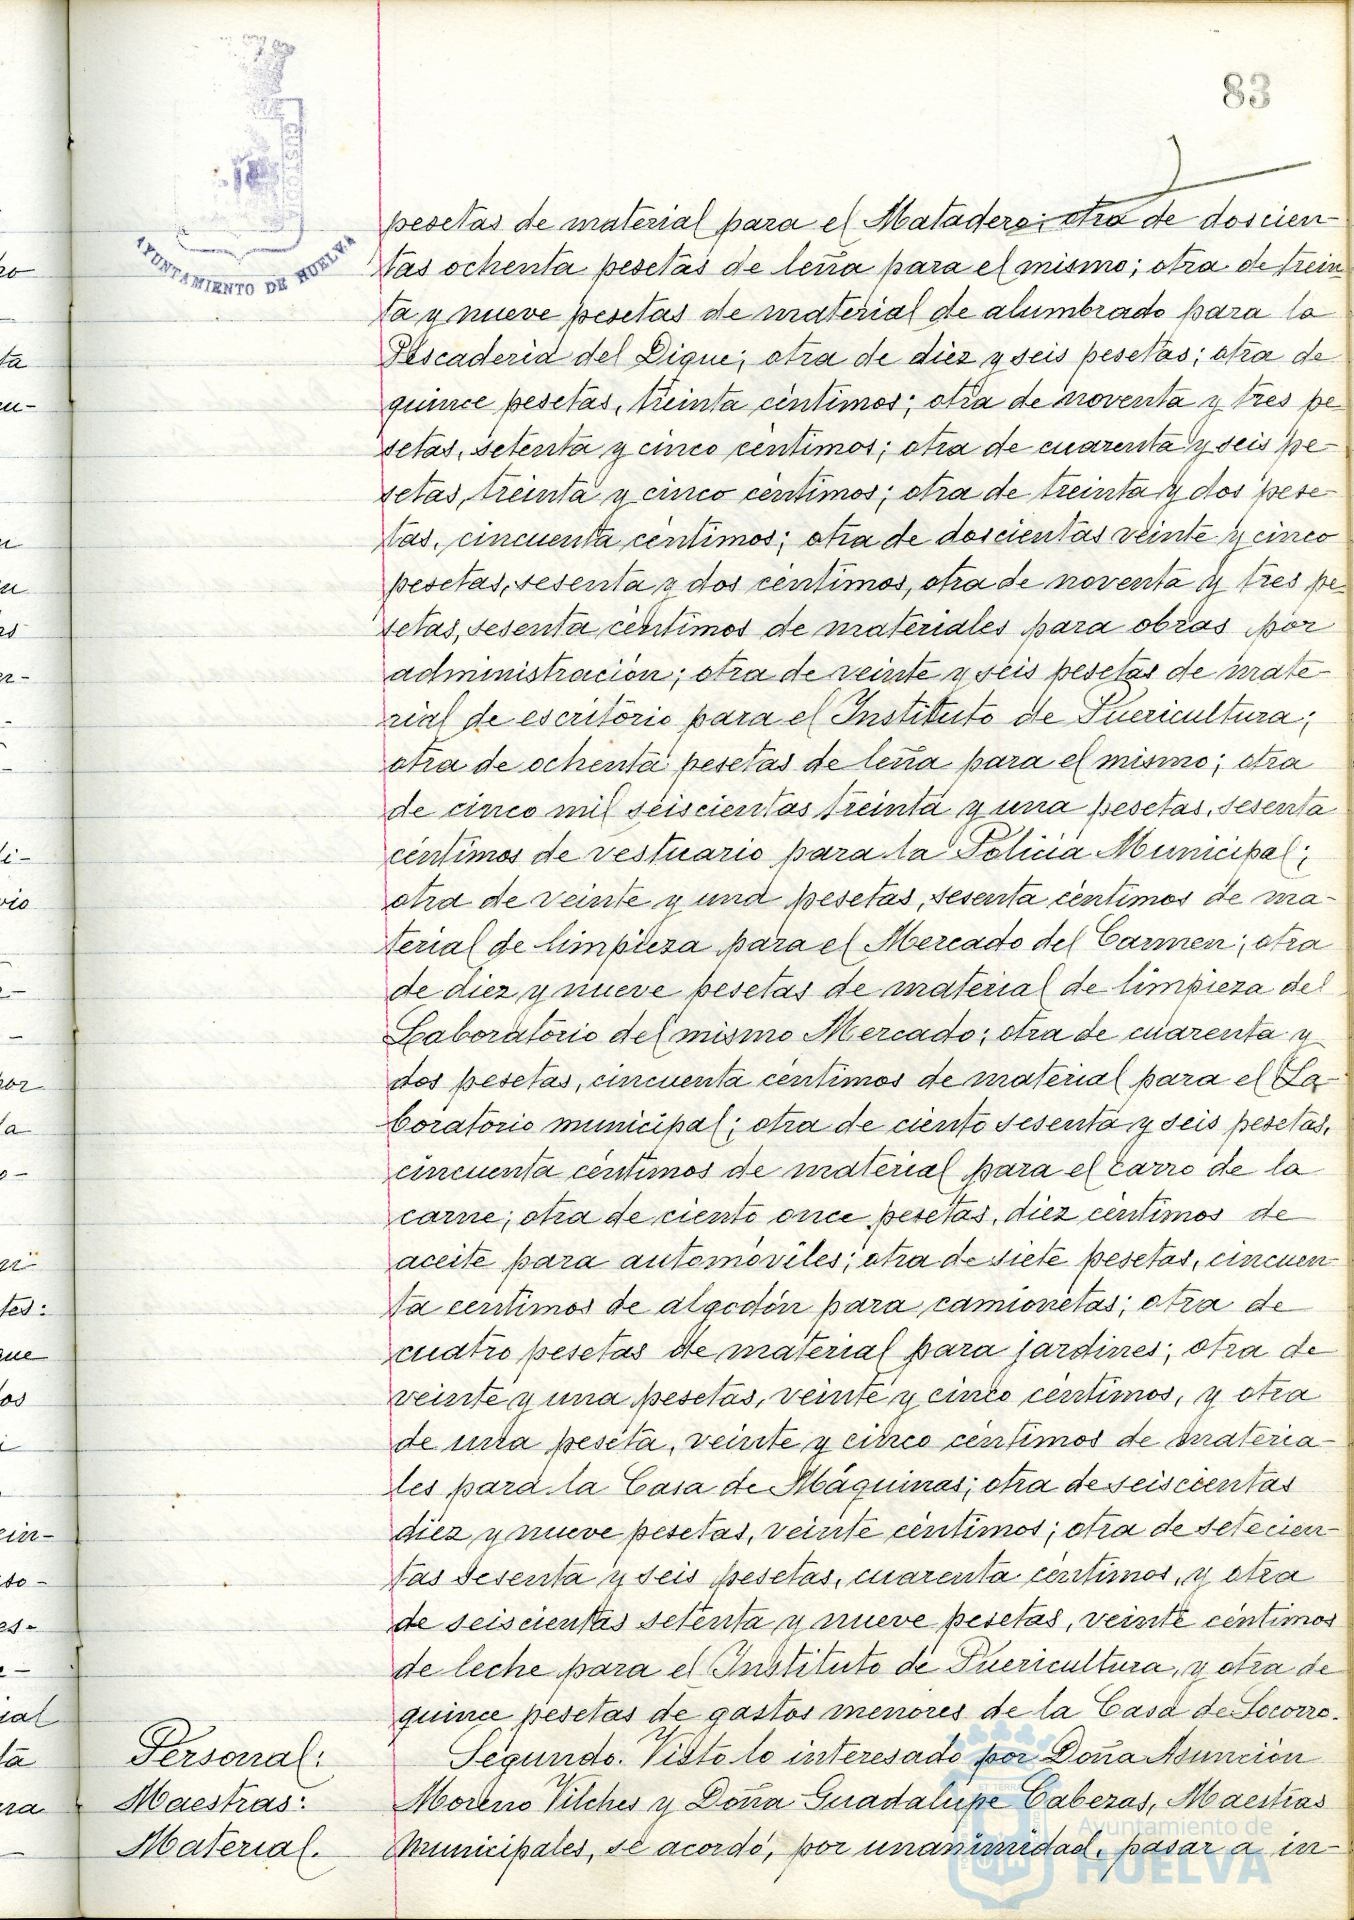 83
CUSTODIA
AYUNTAMIENTO DE HUELVA
pesetas de material para el Matadero; otra de doscien-
tas ochenta pesetas de leña para el mismo; otra de trein-
ta y nueve pesetas de material de alumbrado para la
Pescaderia del Dique; otra de diez y seis pesetas; otra de
quince pesetas, treinta céntimos; otra de noventa y tres pe-
setas, setenta y cinco céntimos; otra de cuarenta y seis pe-
setas, treinta y cinco céntimos; otra de treinta y dos pese-
tas, cincuenta céntimos; otra de doscientas veinte y cinco
pesetas, sesenta y dos céntimos, otra de noventa y tres pe-
setas, sesenta céntimos de materiales para obras por
administración; otra de veinte y seis pesetas de mate-
rial de escritorio para el Instituto de Puericultura;
otra de ochenta pesetas de leña para el mismo; otra
de cinco mil seiscientas treinta y una pesetas, sesenta
céntimos de vestuario para la Policia Municipal;
otra de veinte y una pesetas, sesenta céntimos de ma-
terial de limpieza para el Mercado del Carmen; otra
de diez y nueve pesetas de material de limpieza del
Laboratorio del mismo Mercado; otra de cuarenta y
dos pesetas, cincuenta céntimos de material para el La-
boratorio municipal; otra de ciento sesenta y seis pesetas,
cincuenta céntimos de material para el carro de la
carne; otra de ciento once pesetas, diez céntimos de
aceite para automóviles; otra de siete pesetas, cincuen
ta centimos de algodón para camionetas; otra de
cuatro pesetas de material para jardines; otra de
veinte y una pesetas, veinte y cinco céntimos, y otra
de una peseta, veinte y cinco céntimos de materia-
les para la Casa de Máquinas; otra de seiscientas
diez y nueve pesetas, veinte céntimos; otra de setecien-
tas sesenta y seis pesetas, cuarenta céntimos, y otra
de seiscientas setenta y nueve pesetas, veinte céntimos
de leche para el Instituto de Puericultura, y otra de
quince pesetas de gastos menores de la Casa de Socorro.
Personal:
Maestras:
Material.
Segundo. Visto lo interesado por Doña Asunción
Moreno Vilches y Doña Guadalupe Cabezas, Maestras
Municipales, se acordó, por unanimidad, pasar a in-
Ayuntamiento de
HUELVA